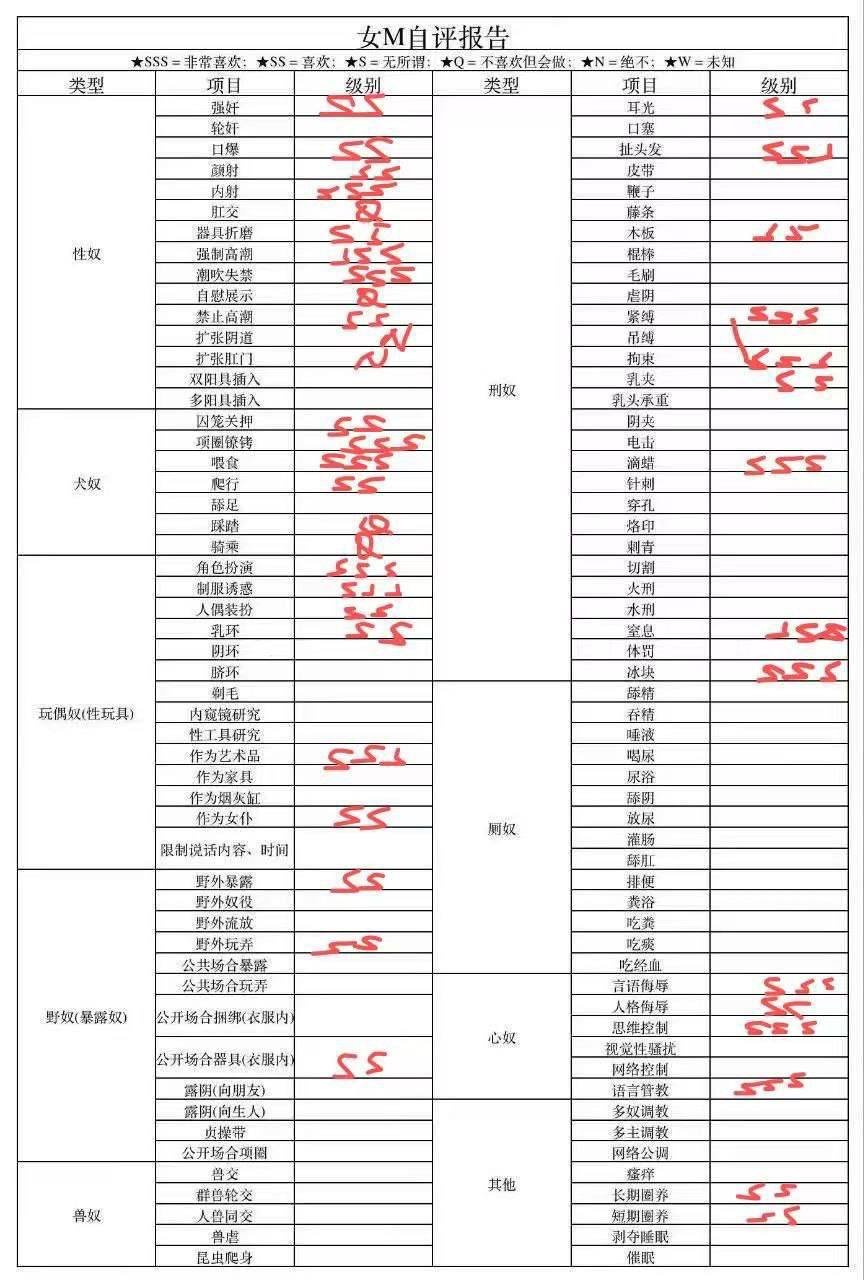 女M自评报告
★SSS＝非常喜欢；★SS＝喜欢；★S＝无所谓；★Q＝不喜欢但会做；★N＝绝不；★W＝未知
类型 项目 级别 类型 项目 级别
强奸 SS 耳光 SS
轮奸 口塞
口爆 SS 扯头发 SSS
颜射 SS 皮带
内射 鞭子
肛交 Q 藤条
器具折磨 SS 木板 SS
性奴 强制高潮 SSS 棍棒
潮吹失禁 SSS 毛刷
自慰展示 Q 虐阴
禁止高潮 SS 紧缚 SSS
扩张阴道 吊缚
扩张肛门 拘束 SSS
双阳具插入 刑奴 乳夹 SS
多阳具插入 乳头承重
囚笼关押 SS 阴夹
项圈镣铐 SSS 电击
犬奴 喂食 SSS 滴蜡 SSS
爬行 SS 针刺
舔足 穿孔
踩踏 Q 烙印
骑乘 Q 刺青
角色扮演 SSS 切割
制服诱惑 SSS 火刑
人偶装扮 SS 水刑
乳环 SS 窒息 SSS
阴环 体罚
脐环 冰块 SSS
剃毛 舔精
玩偶奴(性玩具) 内窥镜研究 吞精
性工具研究 唾液
作为艺术品 SSS 喝尿
作为家具 尿浴
作为烟灰缸 舔阴
作为女仆 SS 厕奴 放尿
限制说话内容、时间 灌肠
舔肛
野外暴露 SS 排便
野外奴役 粪浴
野外流放 吃粪
野外玩弄 SS 吃痰
公共场合暴露 吃经血
公共场合玩弄 言语侮辱 SSS
野奴(暴露奴) 公开场合捆绑(衣服内) 人格侮辱 SS
思维控制 SSS
心奴 视觉性骚扰
公开场合器具(衣服内) SS 网络控制
露阴(向朋友) 语言管教 SSS
露阴(向生人) 多奴调教
贞操带 多主调教
公开场合项圈 网络公调
兽交 瘙痒
群兽轮交 其他 长期圈养 SS
兽奴 人兽同交 短期圈养 SS
兽虐 剥夺睡眠
昆虫爬身 催眠